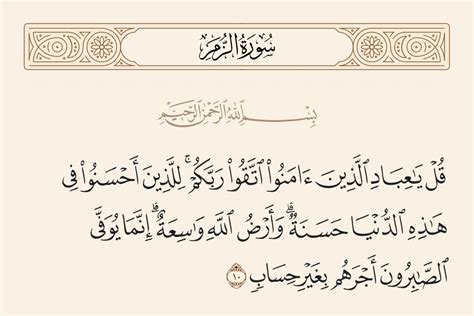 سُورَةُ الزُّمَر
بِسْمِ ٱللَّهِ ٱلرَّحْمَٰنِ ٱلرَّحِيمِ
قُلْ يَٰعِبَادِ ٱلَّذِينَ ءَامَنُوا۟ ٱتَّقُوا۟ رَبَّكُمْ ۚ لِلَّذِينَ أَحْسَنُوا۟ فِى
هَٰذِهِ ٱلدُّنْيَا حَسَنَةٌ ۗ وَأَرْضُ ٱللَّهِ وَٰسِعَةٌ ۗ إِنَّمَا يُوَفَّى
ٱلصَّٰبِرُونَ أَجْرَهُم بِغَيْرِ حِسَابٍ ١٠